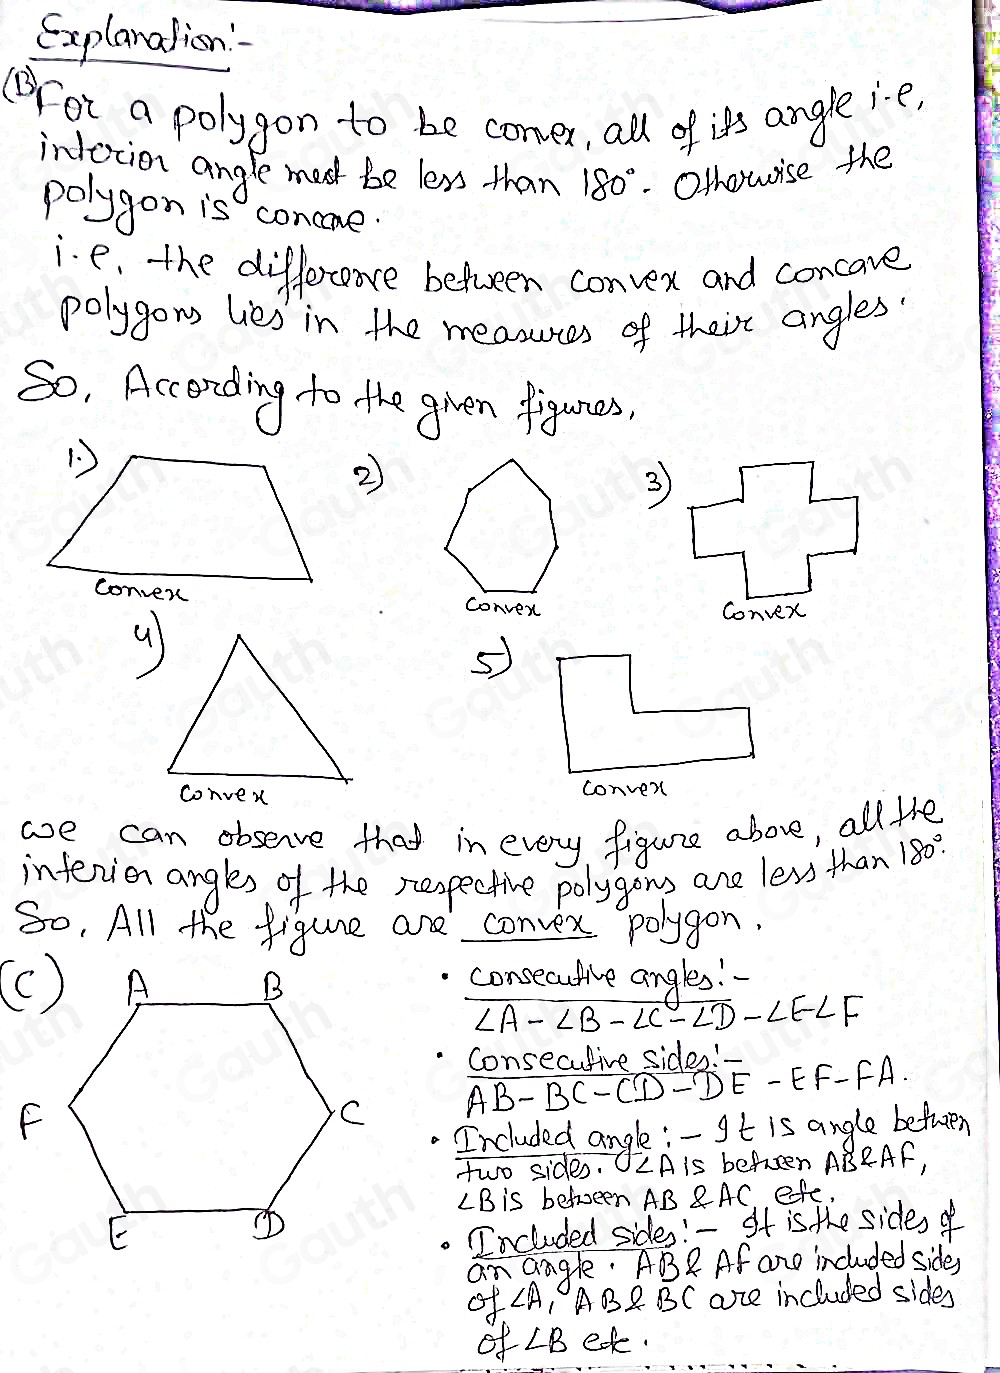 Explanation:-
(B) For a polygon to be convex, all of its angle i.e,
interior angle must be less than 180°. Otherwise the
polygon is concave.
i.e, the difference between convex and concave
polygons lies in the measures of their angles.
So, According to the given figures,
1.) 2) 3)
Convex
Convex
Convex
4) 5)
Convex
Convex
we can observe that in every figure above, all the
interior angles of the respective polygons are less than 180°.
So, All the figure are convex polygon.
(C)
A B
F C
E D
• Consecutive angles:-
∠A - ∠B - ∠C - ∠D - ∠E ∠F
• Consecutive sides:-
AB - BC - CD - DE - EF - FA.
• Included angle :- It is angle between
two sides. ∠A is between AB & AF,
∠B is between AB & AC etc.
• Included sides:- It is the sides of
an angle. AB & AF are included sides
of ∠A, AB & BC are included sides
of ∠B etc.